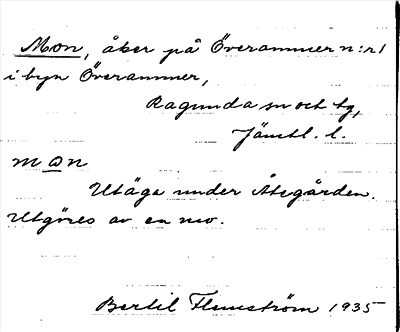 Mon, åker på Överammer n:r 1
i byn Överammer,
Ragunda sn och tg,
Jämtl. l.
mɷn
Utäga under Åtegården.
Utgöres av en mo.
Bertil Flemström 1935